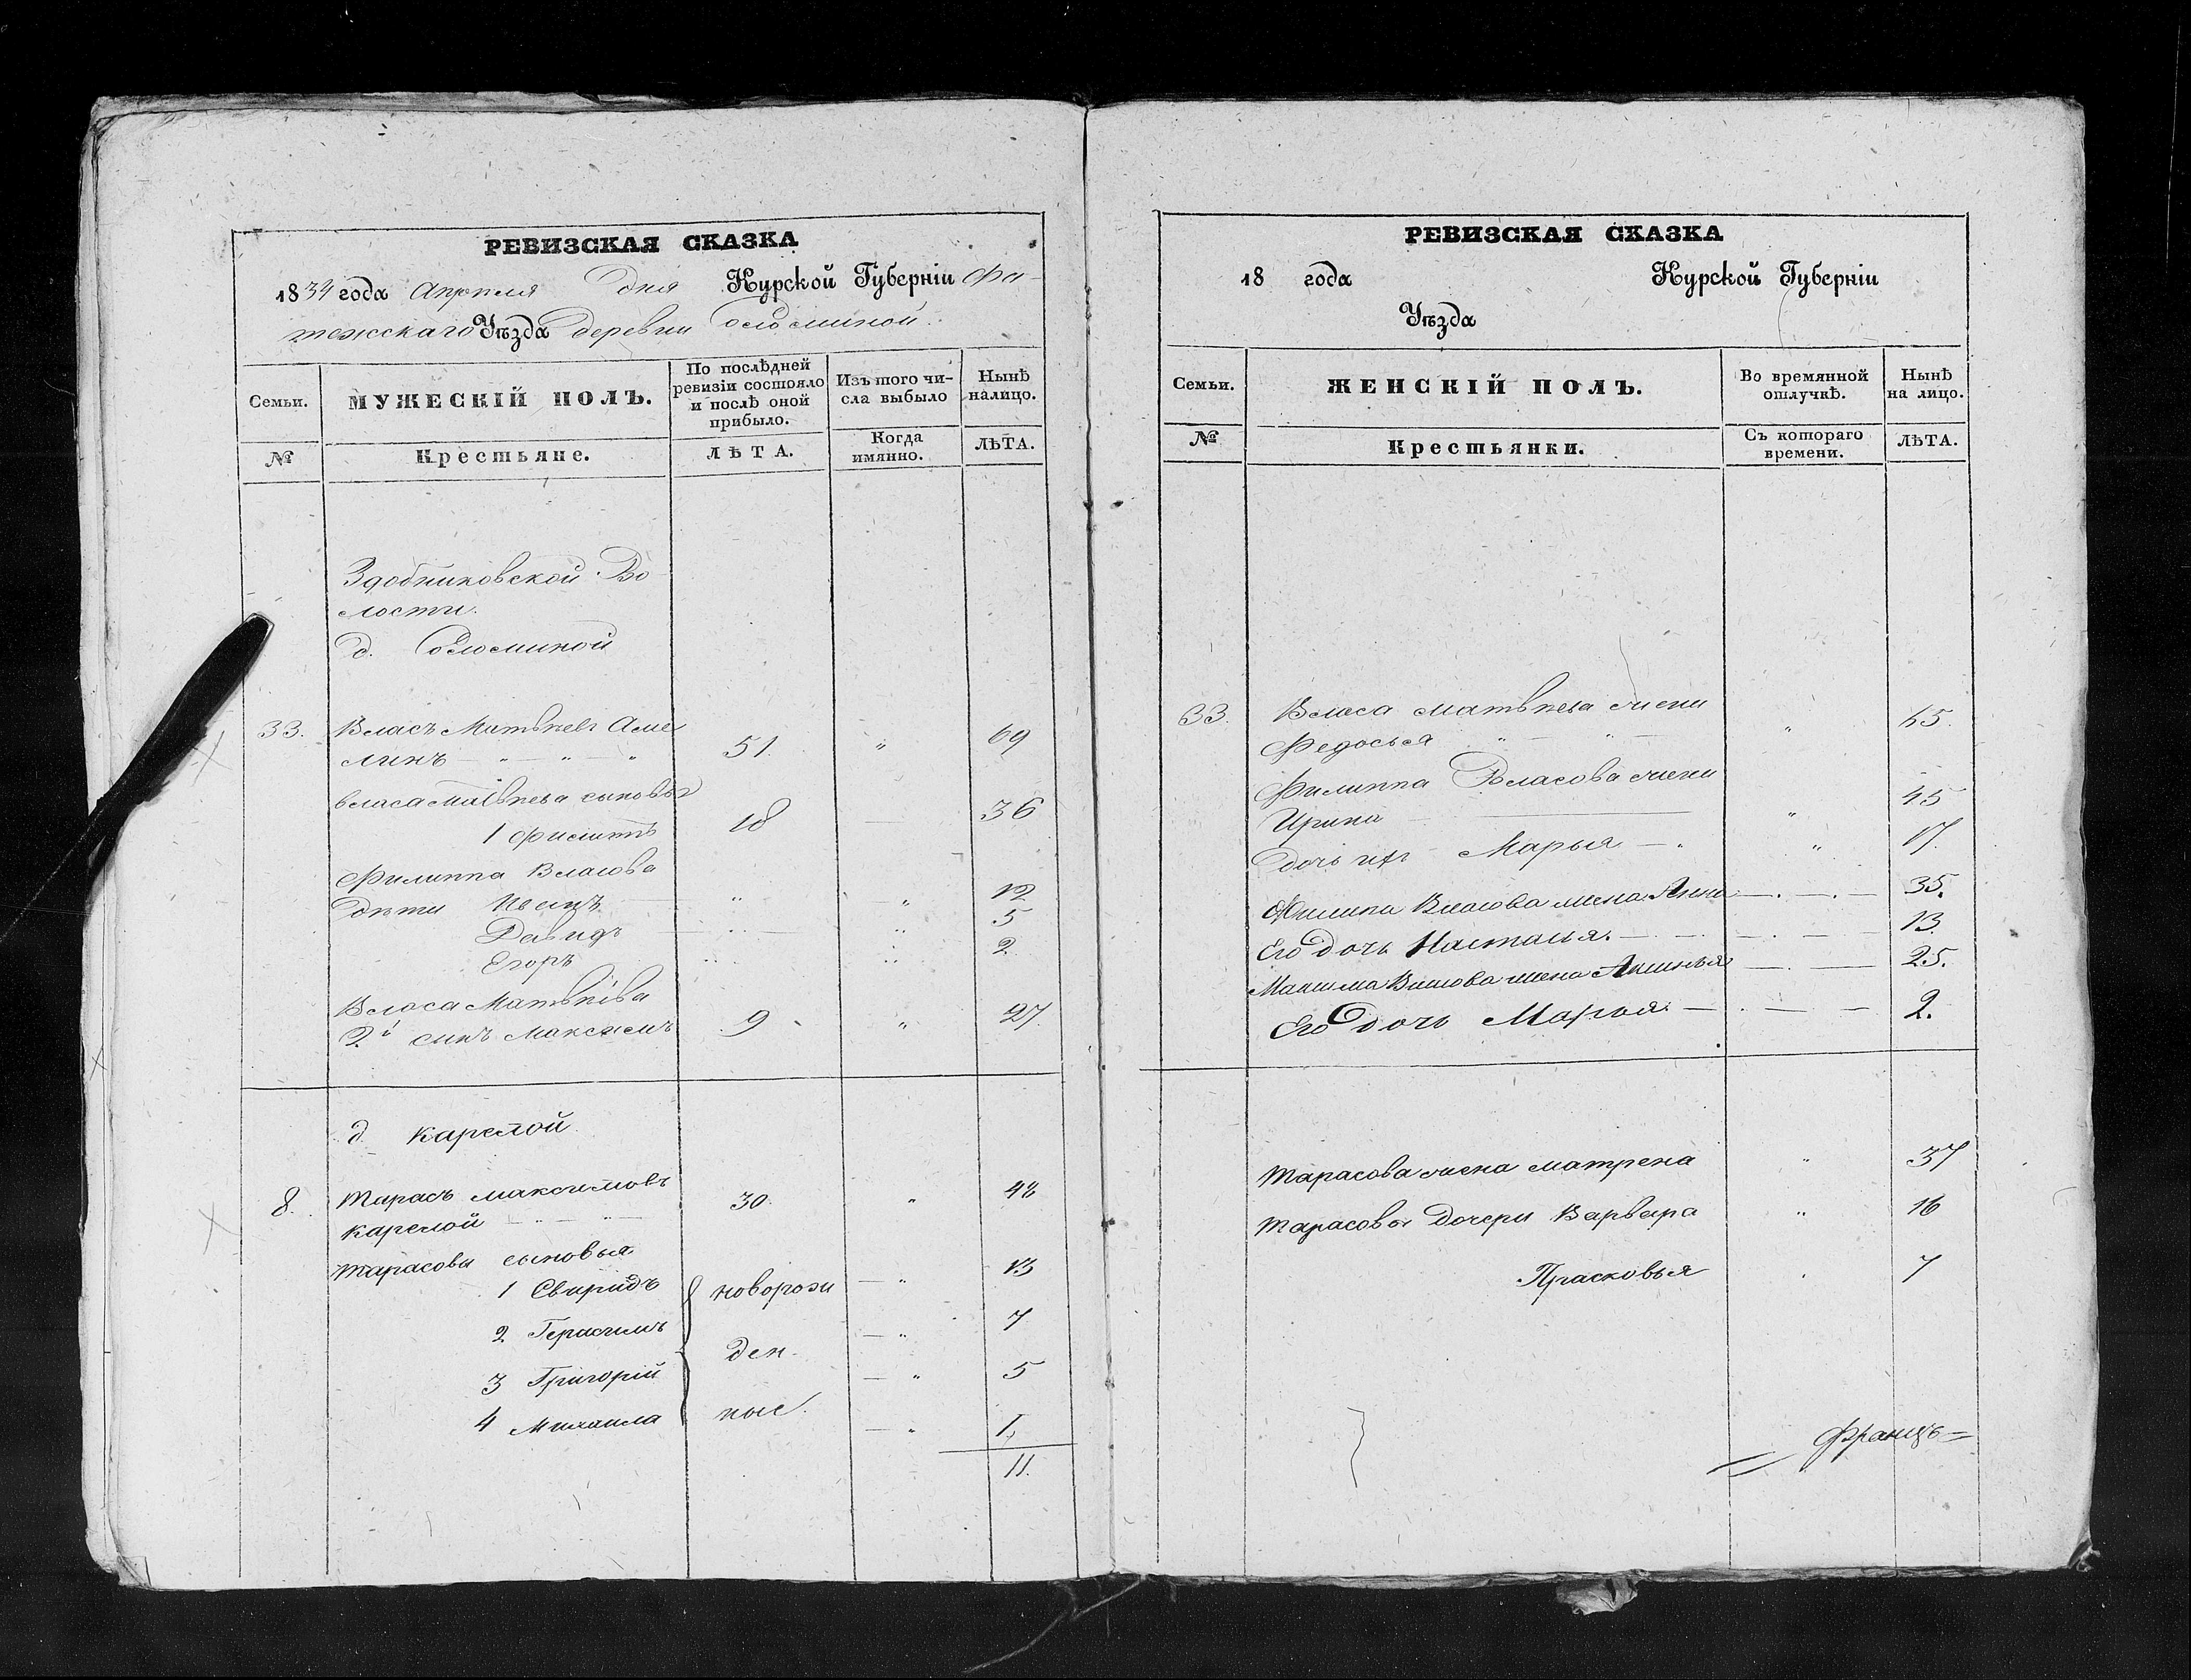 РЕВИЗСКАЯ СКАЗКА
1834 года Апреля дня Курской Губерніи Фа-
тежскаго Уѣзда деревни Соломиной.
Семьи.
МУЖЕСКІЙ ПОЛЪ.
По послѣдней ревизіи состояло и послѣ оной прибыло.
Изъ того чи-
сла выбыло
Нынѣ
налицо.
№
Крестьяне.
ЛѢТА.
Когда
имянно.
ЛѢТА.
Здобниковской Во
лости.
д. Соломиной
33. Власъ Матвѣевъ Аме
линъ — " — " — " 51. " 69
Власа Матвѣева сыновья
1 Филиппъ 18 — 36
Филиппа Власова
дѣти 12
Давидъ — " — " 5
Егоръ " " 2
Власа Матвѣева
2й сынъ Максимъ 9 " 27.
д. Карелой
8. Тарасъ Максимовъ
Карелой — " — " — 30. " 48
Тарасовы сыновья
1 Свиридъ новорож — " 13
2. Герасимъ — " 7
ден.
3 Григорій — " 5
4 Михаила ные. — " 1,
11.
РЕВИЗСКАЯ СКАЗКА
18 года Курской Губерніи
Уѣзда
Семьи.
ЖЕНСКІЙ ПОЛЪ.
Во времянной
отлучкѣ.
Нынѣ
на лицо.
№
Крестьянки.
Съ котораго
времени.
ЛѢТА.
33. Власа Матвѣева жена
Федосья " — " — " 65.
Филиппа Власова жена
Ирина — " 45
Дочь ихъ Марья — " " 17.
Филипа Власова жена Анна — . — . — 35.
Его дочь Настасья. — . — . — 13.
Максима Власова жена Аксинья — . — 25.
Его дочь Марья — . — — 2.
Тарасова жена Матрена " 37
Тарасовы дочери Варвара " 16
Прасковья . 7
Францъ =